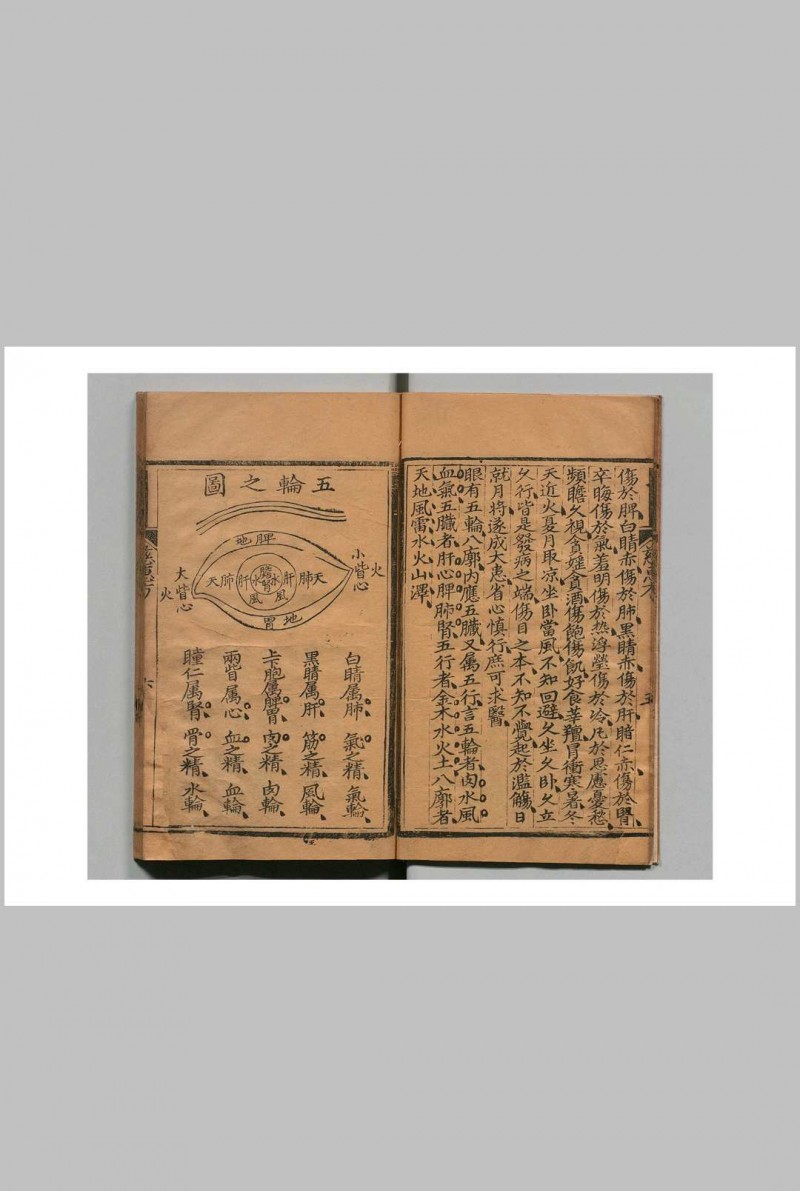 傷於脾白睛赤傷於肺黑睛赤傷於肝瞳仁赤傷於腎
卒晦傷於氣羞明傷於熱浮瑩傷於冷凡於思慮憂愁
頻瞻久視貪婬貪酒傷飽傷飢好食葷羶冒衝寒暑冬
天近火夏月取凉坐卧當風不知回避久坐久卧久立
久行皆是發病之端傷目之本不知不覺起於濫觴日
就月將遂成大患省心慎行庶可求醫
眼有五輪八廓內應五臟又属五行言五輪者肉水風
血氣五臟者肝心脾肺腎五行者金木水火土八廓者
天地風雷水火山澤
五輪之圖
地脾
小眥心
火
大眥心
火
天肺肝水瞳腎水肝肺天
風
風
胃地
白睛属肺 氣之精 氣輪
黑睛属肝 筋之精 風輪
上下胞属脾胃 肉之精 肉輪
兩眥属心 血之精 血輪
瞳仁属腎 骨之精 水輪
六
五